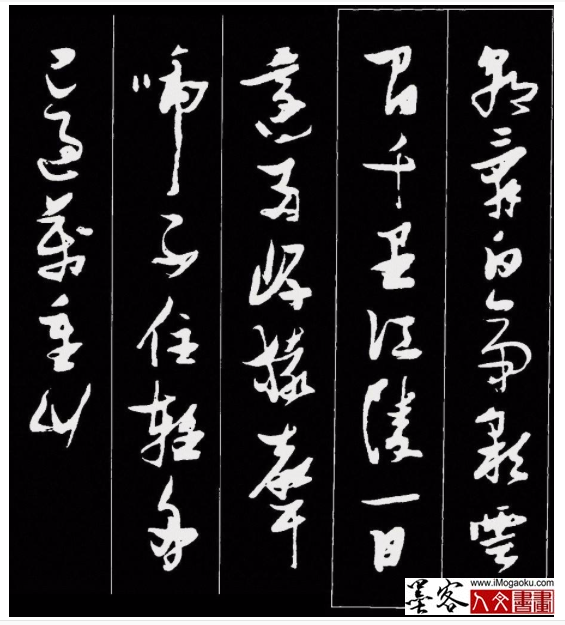 朝辭白帝彩雲
間千里江陵一日
還兩岸猿聲
啼不住輕舟
已過萬重山
墨客
www.iMogaoku.com
人文書畫